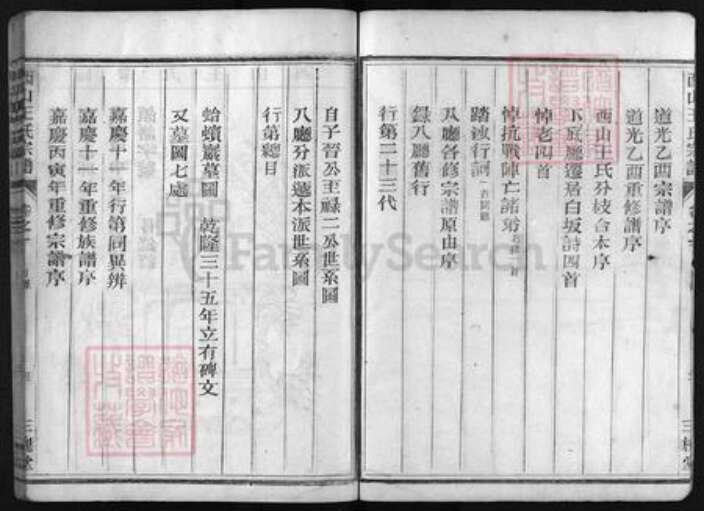 道光乙酉宗譜序
道光乙酉重修譜序
西山王氏分枝合本序
下底廳遷居白坂詩四首
悼老四首
悼抗戰陣亡諸弟
踏蝕行詞
八廳各修宗譜原由序
錄八廳舊行
行第二十三代
自子晉公至祿二公世系圖
八廳分派遞本派世系圖
行第總目
蛤蟥巖墓圖 乾隆三十五年立有碑文
又墓圖七處
嘉慶十一年行第同異辨
嘉慶十一年重修族譜序
嘉慶丙寅年重修宗譜序
西山王氏宗譜
三槐堂
FamilySearch